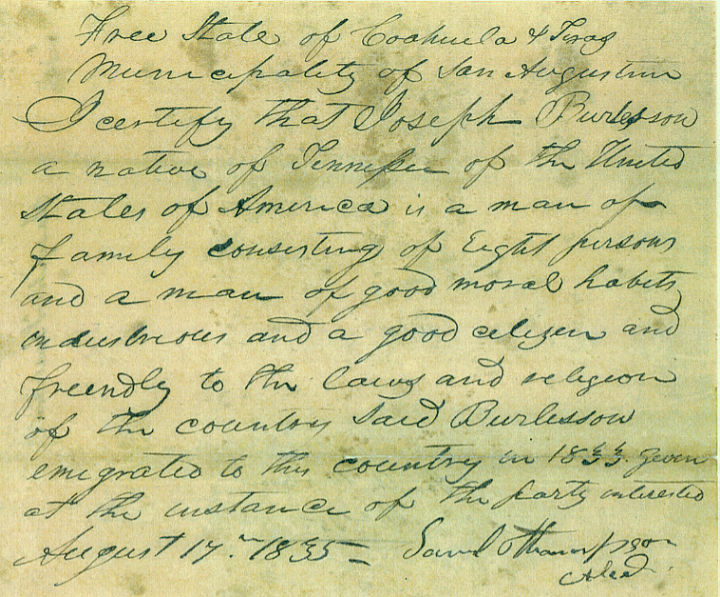 Free State of Coahuela & Texas
Municipality of San Augustin
I certify that Joseph Burlesson
a native of Tennessee of the United
States of America is a man of
family consisting of Eight persons
and a man of good moral habits
industrious and a good citizen and
friendly to the laws and religion
of the country Said Burlesson
emigrated to this country in 1833. given
at the instance of the party interested
August 17th. 1835 – Saml Thompson